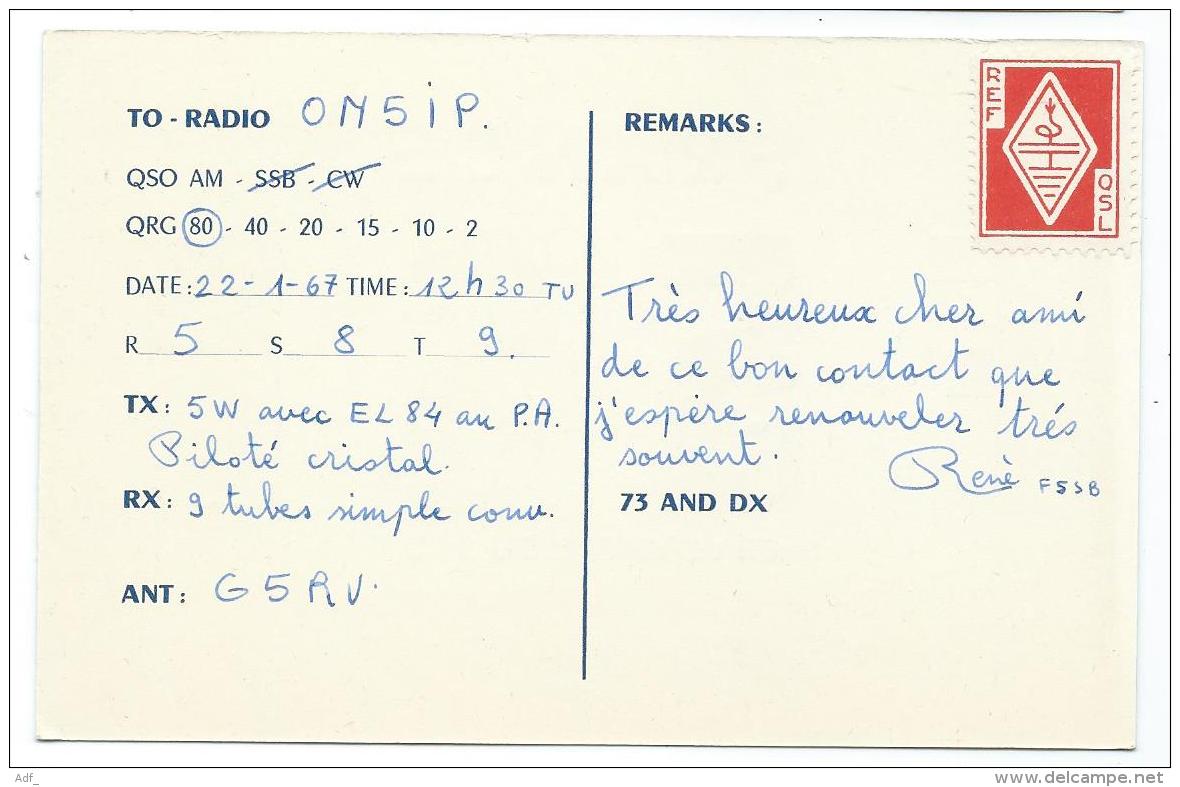 TO - RADIO ON5iP.
QSO AM - SSB - CW
QRG 80 - 40 - 20 - 15 - 10 - 2
DATE: 22-1-67 TIME: 12h30 TU
R 5 S 8 T 9.
TX: 5W avec EL84 au P.A.
Piloté cristal.
RX: 9 tubes simple conv.
ANT: G5RV.
REMARKS:
REF
QSL
Très heureux cher ami
de ce bon contact que
j'espère renouveler trés
souvent.
René F5SB
73 AND DX
Adf_
www.delcampe.net